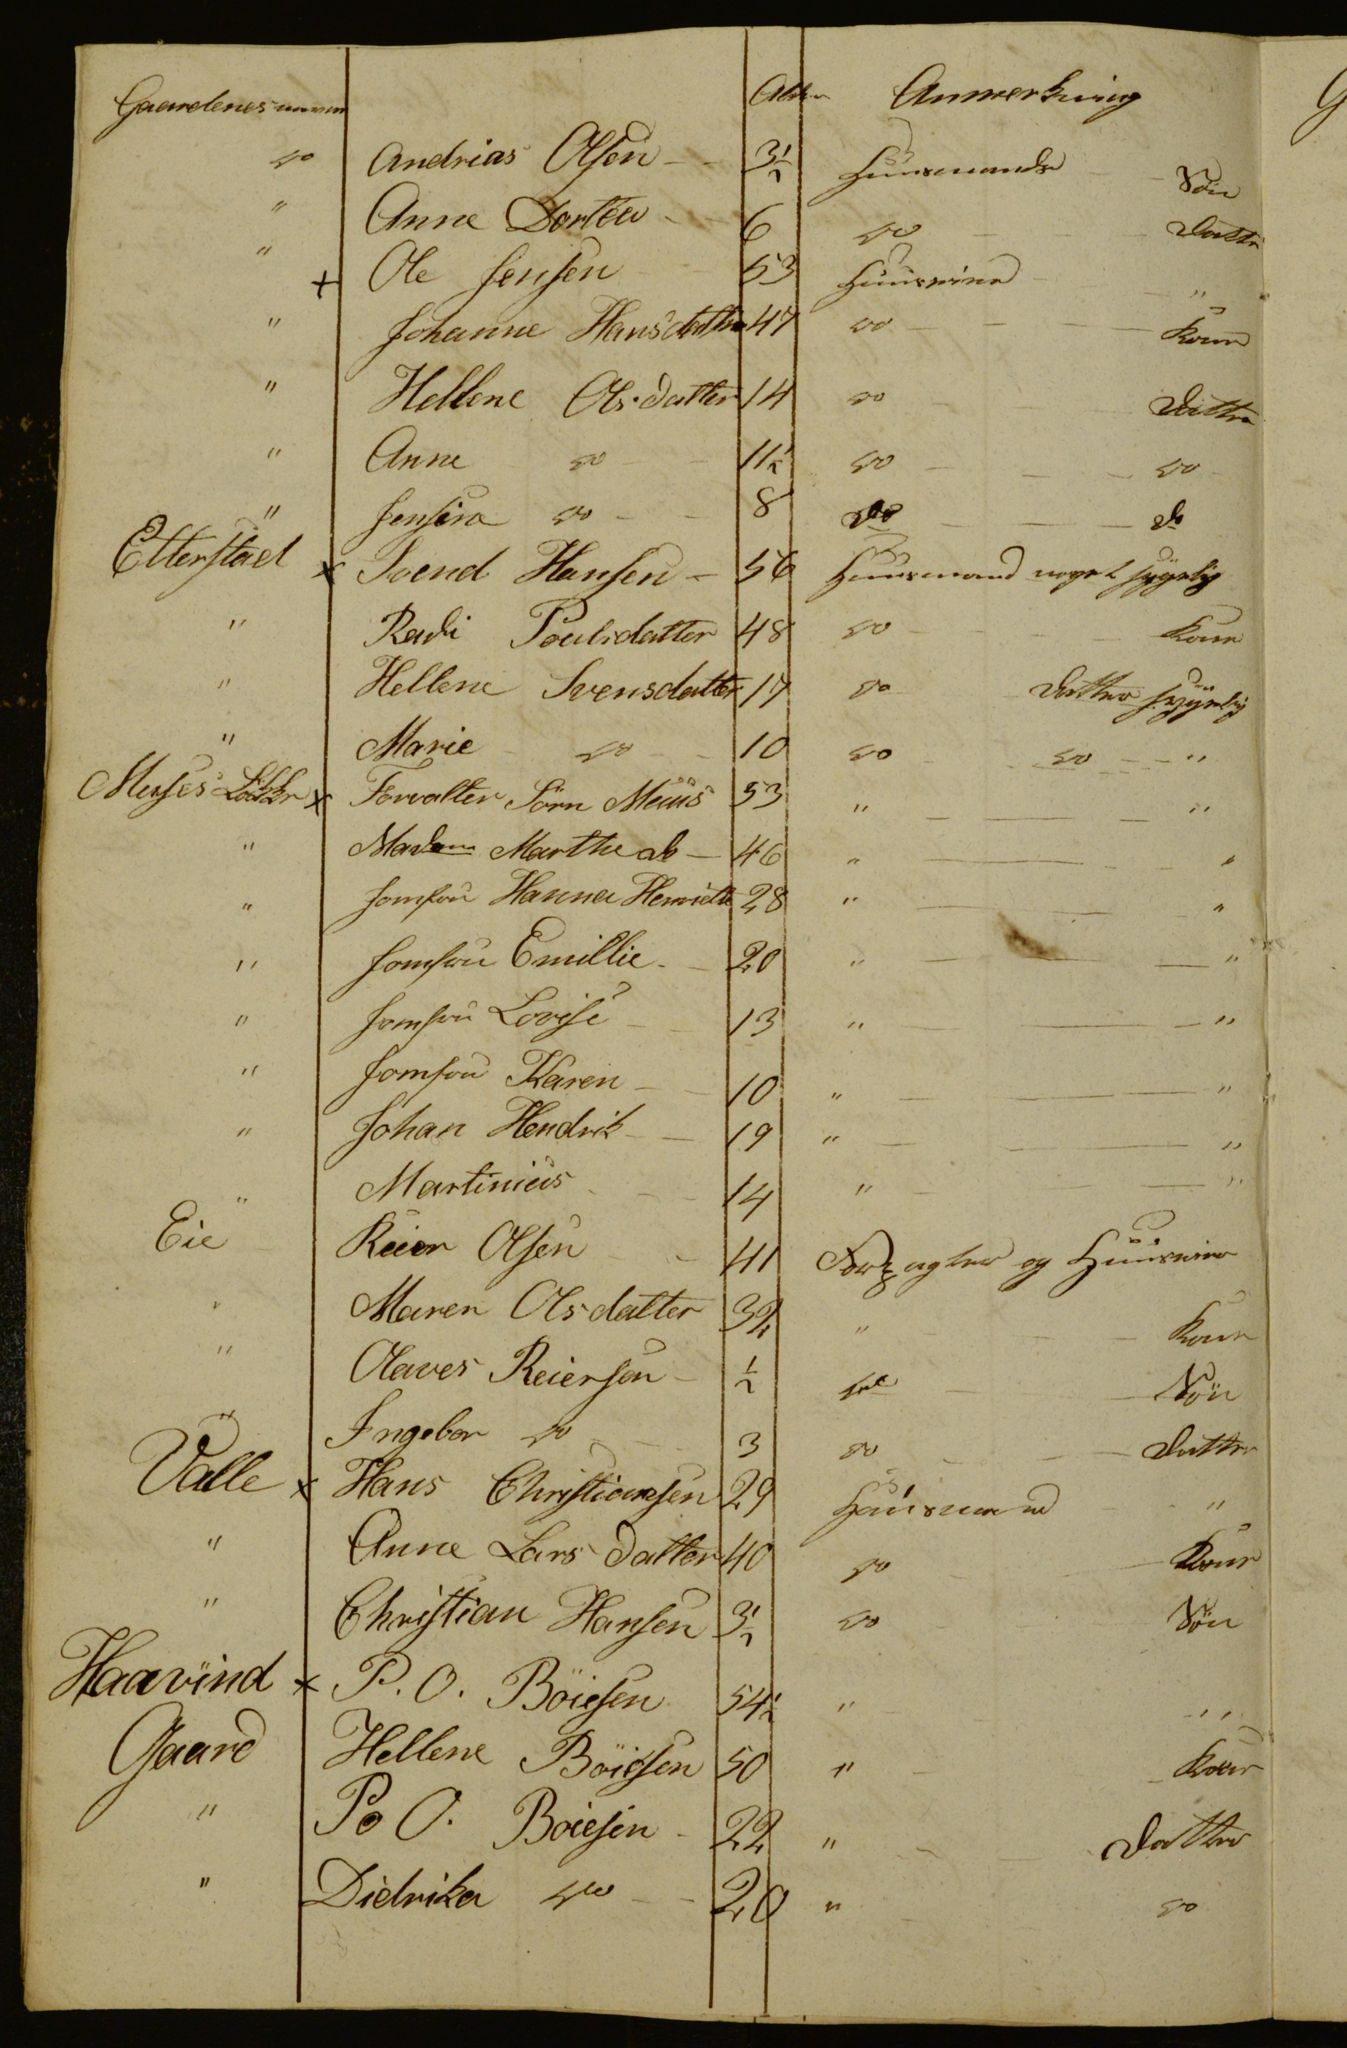 Gaardenes navn Alder Anmerkning
do Andrias Olsen 3½ Huusmands Søn
" Anne Dortea 6 do Datter
" + Ole Jensen 53 Huusmand "
" Johanne Hansdatter 47 do Kone
" Hellene Olsdatter 14 do Datter
" Anne do 11½ do do
" Jensine do 8 do do
Etterstad x Svend Hansen 56 Huusmand noget sygelig
" Radi Poulsdatter 48 do Kone
" Hellene Svensdatter 17 do Datter sygelig
" Marie do 10 do do "
x Forvalter Sörn 53 " "
" Madam Marthe do 46 " "
" Jomfru Hanna Henriette 28 " "
" Jomfru Emillie 20 " "
" Jomfru Lovise 13 " "
" Jomfru Karen 10 " "
" Johan Hendrik 19 " "
" Martinius 14 " "
Eie Reier Olsen 41 Forpagter og
" Maren Olsdatter 32 " Kone
" Olaves Reiersen ½ do Søn
" Ingebor do 3 do Datter
Valle x Hans Christiansen 29 Huusmand "
" Anne Lars datter 40 do Kone
" Christian Hansen 3½ do Søn
Haavind x P. O. Böiesen 54½ " "
Gaard Hellene Böiesen 50 " Kone
" P. O. Boiesen 22 " Datter
" Didrika do 20 " do